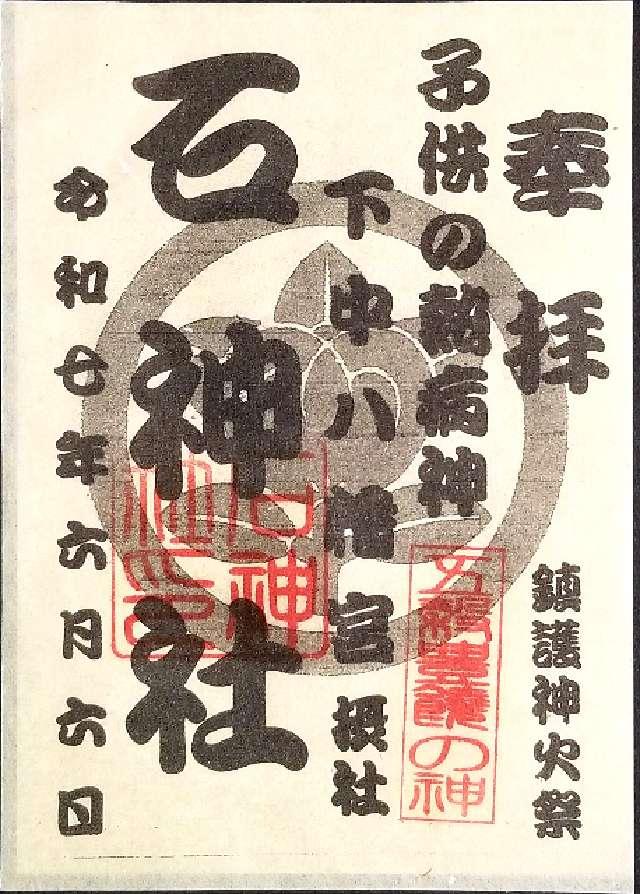 奉拝
鎮護神火祭
子供の熱病神
下中八幡宮摂社
石神社
令和七年六月六日
石神社印